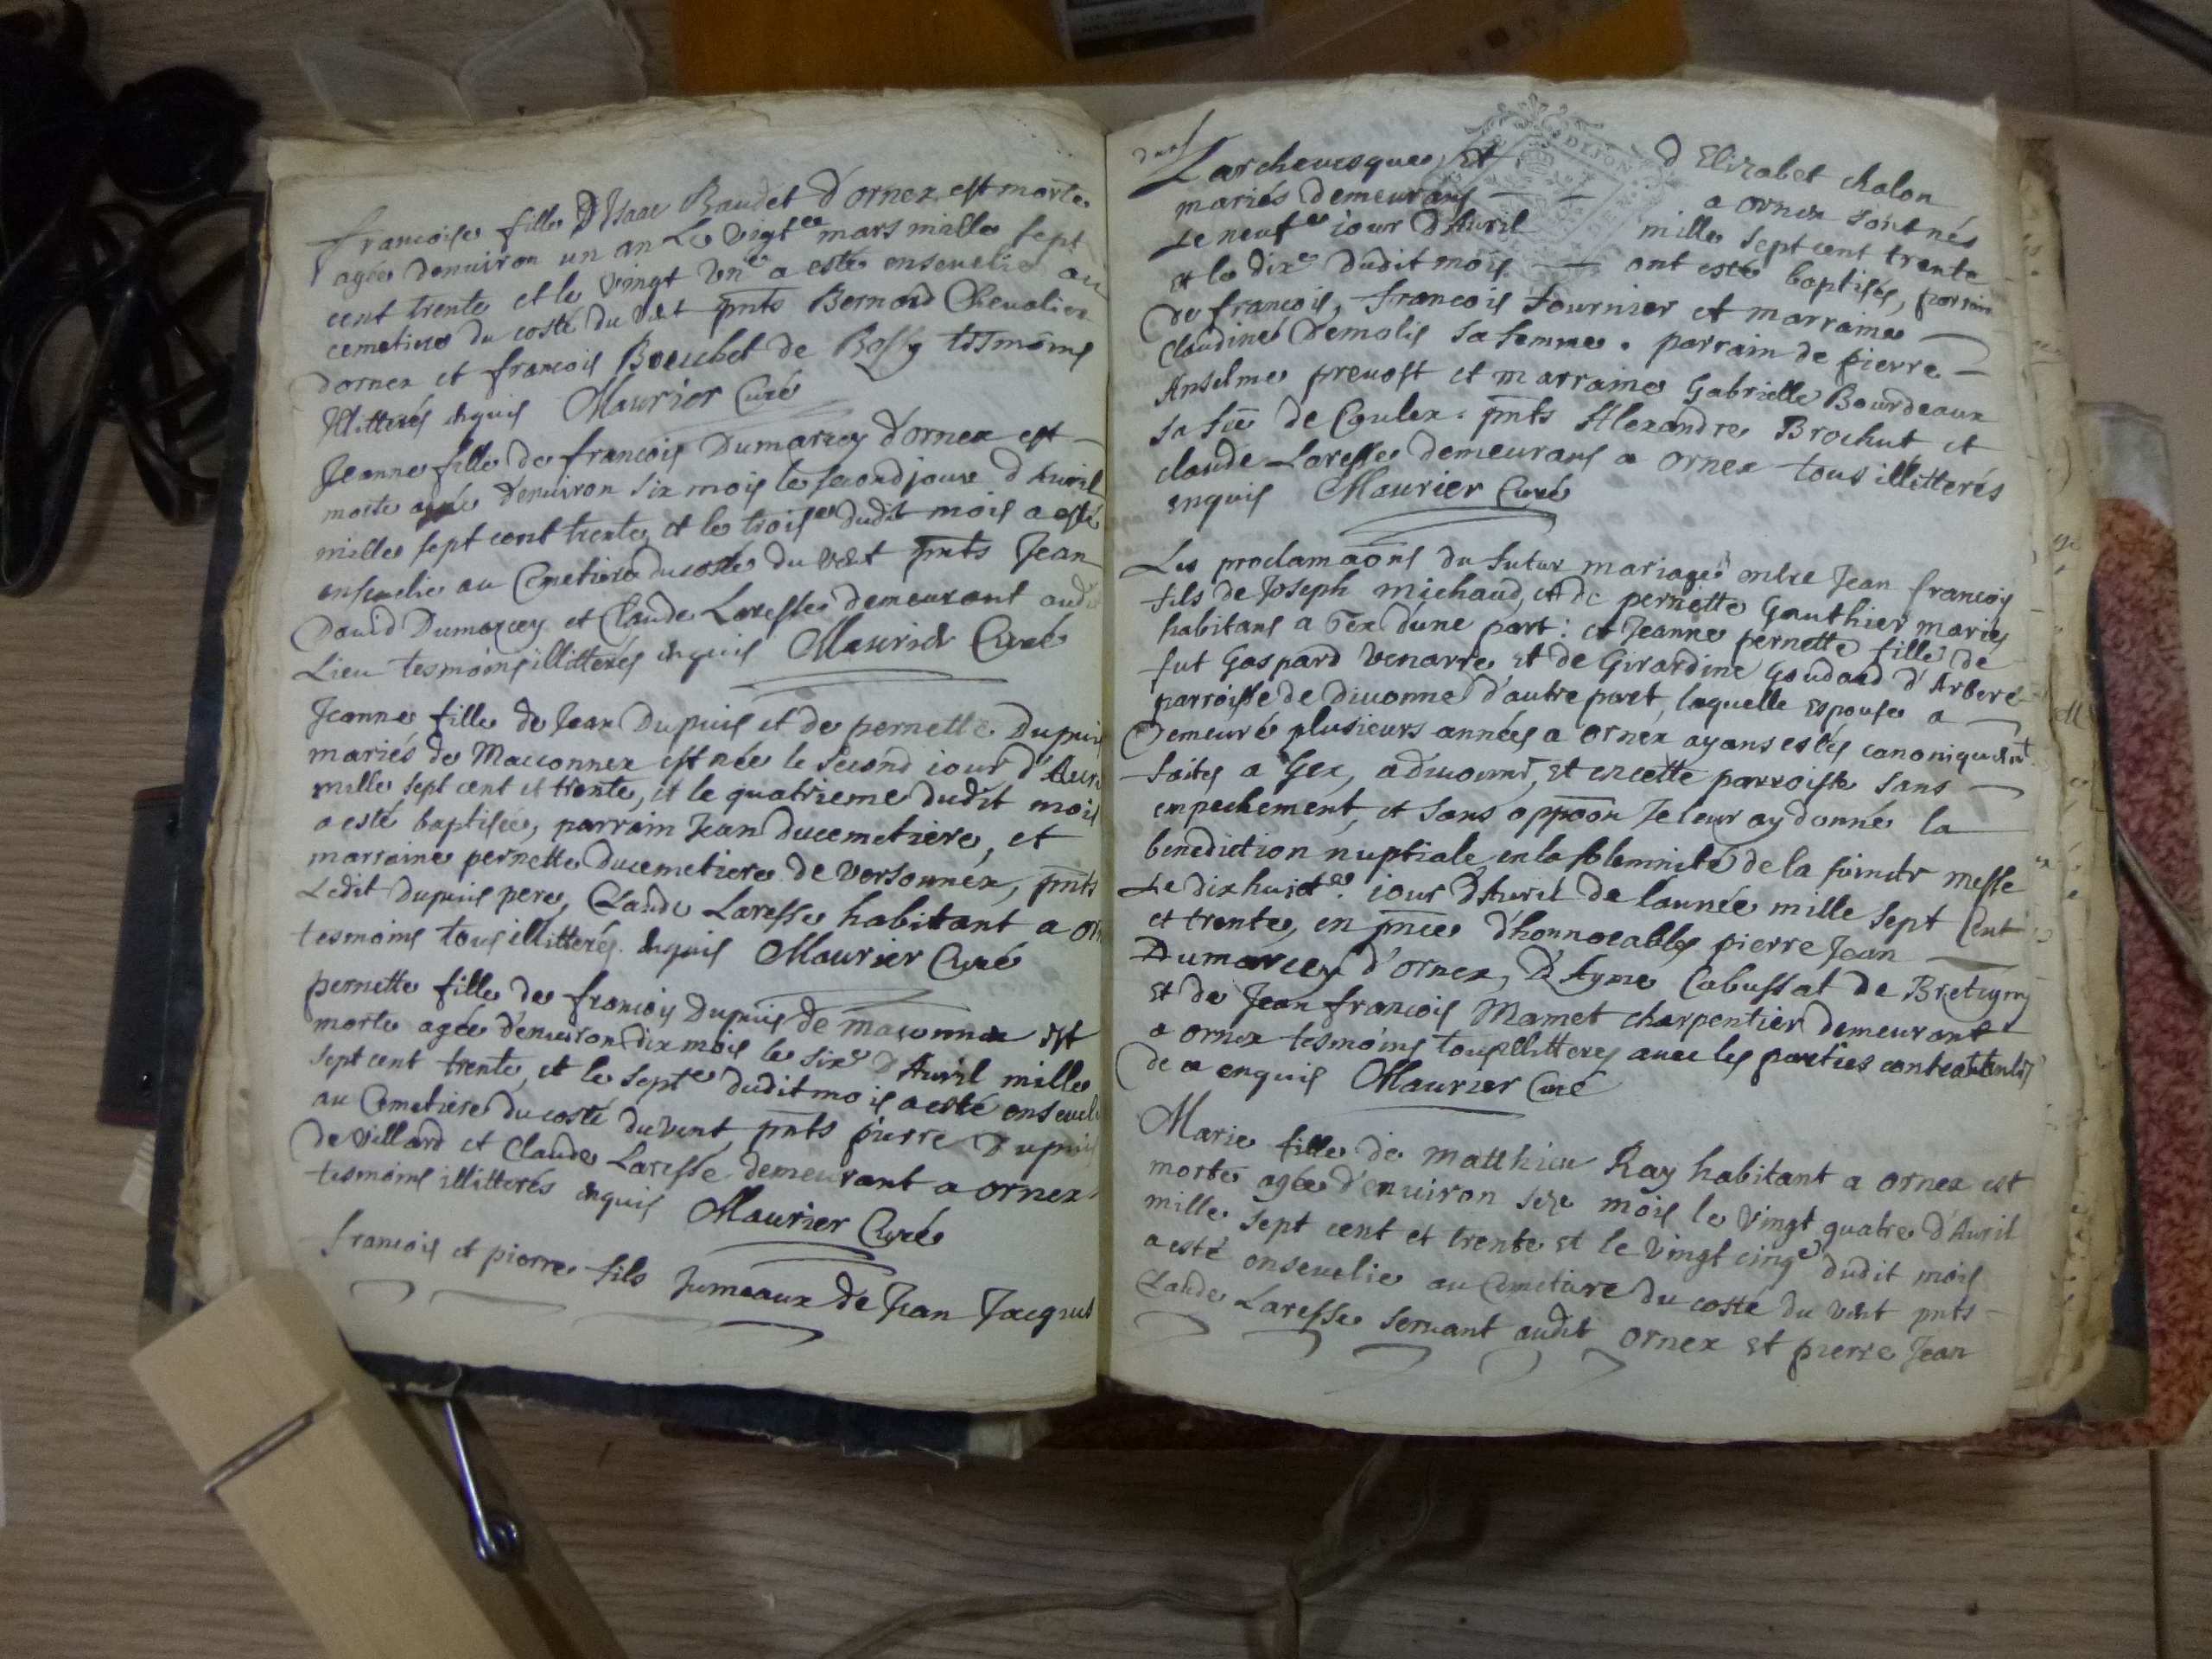 francoise fille D'Isaac Baudet d'ornex est morte
agée denuiron un an Le Vigt.e mars mille sept
cent trente et le vingt vn.e a esté enseuelie au
cemetiere du costé du vent pnts Bernard Cheualier
dornex et francois Bouchet de Bossy tesmoins
illitterés enquis Maurier Curé
Jeanne fille de francois Dumarcey d'ornex est
morte agée d'enuiron six mois le second jour d'Auril
mille sept cent trente, et le trois.e dudit mois a esté
enseuelie au Cemetiere du costé du vent pnts Jean
Dauid Dumarcey et Claude Laresse demeurant audit
Lieu tesmoins illitterés enquis Maurier Curé
Jeanne fille de Jean Dupuis et de pernette Dupuis
mariés de Maconnex est née le second iour d'Auri
mille sept cent et trente, et le quatrieme dudit mois
a esté baptisée, parrain Jean Ducemetiere, et
marraine pernette Ducemetiere de Versonnex, pnts
Ledit Dupuis pere, Claude Laresse habitant a orn
tesmoins tous illitterés enquis Maurier Curé
pernette fille de francois Dupuis de maconnex est
morte agée d'enuiron dix mois le six.e d'Auril mille
sept cent trente, et le sept.e dudit mois a esté enseueli
au Cemetiere du costé du vent, pnts pierre Dupuis
de Villard et Claude Laresse demeurant a ornex
tesmoins illitterés enquis Maurier Curé
francois et pierre fils Jumeaux de Jean Jacques
Larcheuesque, Et d'Elizabet chalon
mariés demeurans a ornex sont nés
Le neuf.e iour d'Auril mille sept cent trente
et le dix.e dudit mois ont esté baptisés, parrain
de francois, francois fournier et marraine
Claudine Demolis sa femme. parrain de pierre
Anselme preuost et marraine Gabrielle Bourdeaux
sa fe de Coulex. pnts Alexandre Brochut et
claude Laresse demeurans a ornex tous illitterés
enquis Maurier Curé
Les proclamaons du futur mariage entre Jean francois
fils de Joseph michaud, et de pernette Gauthier mariés
habitans a Gex d'une part: et Jeanne pernette fille de
fut Gaspard Venarre et de Girardine Goudard d'Arbere
parroisse de diuonne d'autre part, laquelle espouse a
Demeuré plusieurs années a ornex ayans estés canoniquemt
faites a Gex, a diuonne, et en cette parroisse sans
empechement, et sans oppoon Je leur ay donné la
benediction nuptiale en la solemnité de la sainte messe
Le dixhuict.e iour d'Auril de l'année mille sept Cent
et trente, en pnce d'honnorables pierre Jean
Dumarcey d'ornex, d'Ayme Cabussat de Bretigny
et de Jean francois Mamet charpentier demeurant
a ornex tesmoins tous illitterés auec les parties contractantes
de ce enquis Maurier Curé
Marie fille de matthieu Ray habitant a ornex est
morte agée d'enuiron seze mois le vingt quatre d'Auril
mille sept cent et trente et le vingt cinq.e dudit mois
a esté enseuelie au Cemetiere du costé du vent pnts
Claude Laresse seruant audit ornex et pierre Jean